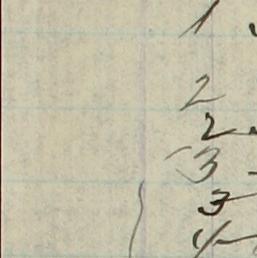 1
2
2
3
3
4